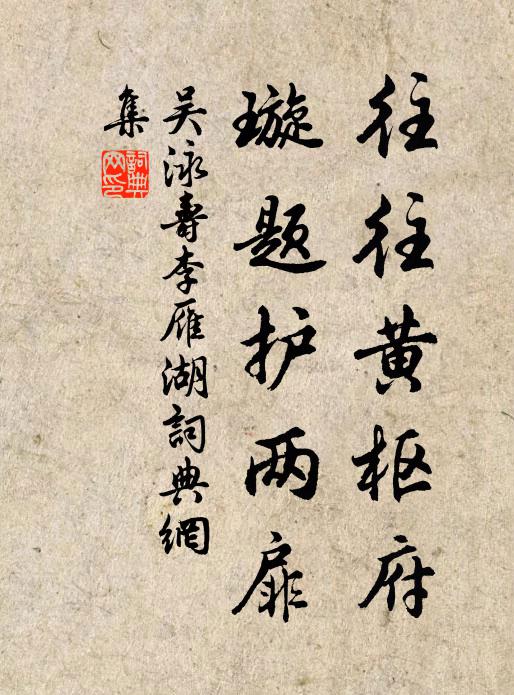 往往黄枢府
璇题护两扉
吴泳寿李雁湖詞典網
集
詞典
网印